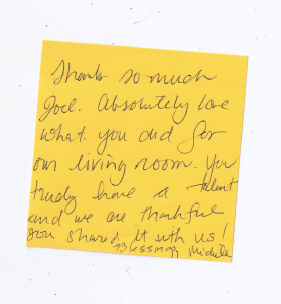 Thanks so much
Joel. Absolutely love
what you did for
our living room. You
truely have a talent
and we are thankful
you shared it with us!
Blessings Michelle